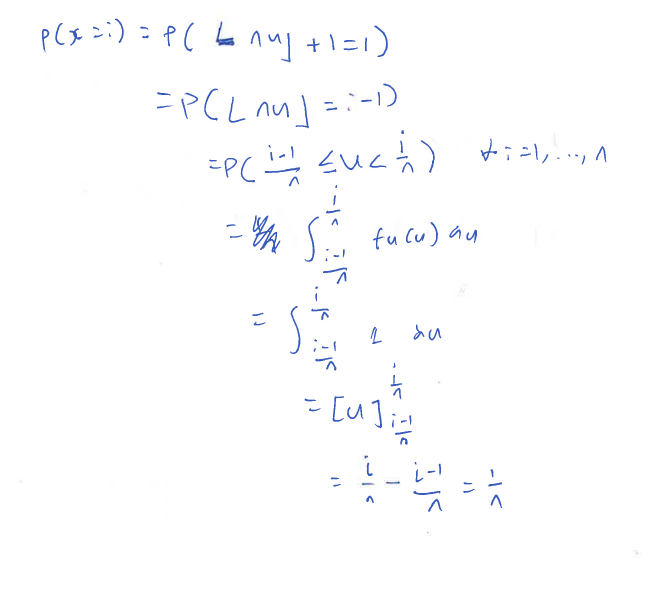 P(x=i) = P(⌊nu⌋ + 1 = 1)
= P(⌊nu⌋ = i-1)
= P(\frac{i-1}{n} ≤ u < \frac{i}{n}) ∀ i=1, ..., n
= ∫_{\frac{i-1}{n}}^{\frac{i}{n}} fu(u) du
= ∫_{\frac{i-1}{n}}^{\frac{i}{n}} 1 du
= [u]_{\frac{i-1}{n}}^{\frac{i}{n}}
= \frac{i}{n} - \frac{i-1}{n} = \frac{1}{n}